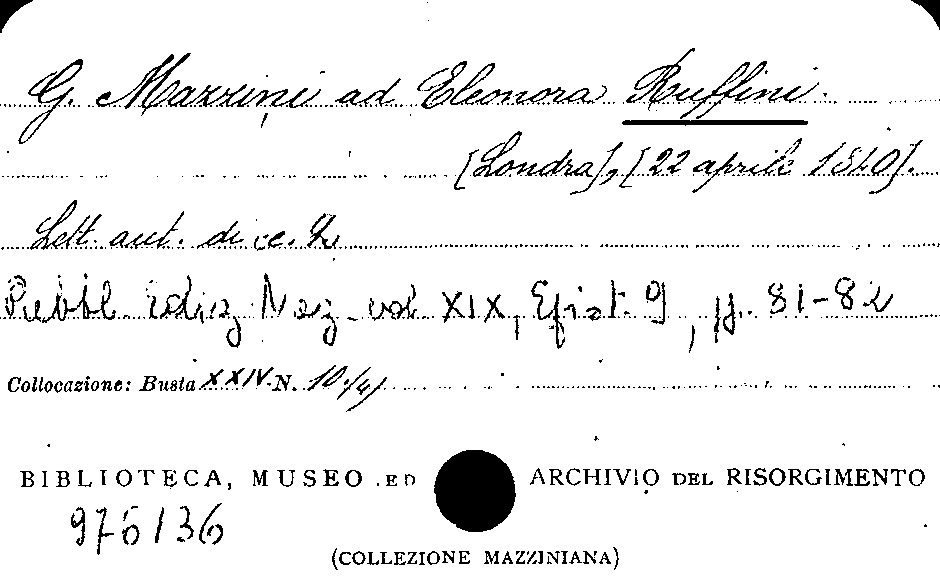 G. Mazzini ad Eleonora Ruffini.
[Londra], [22 aprile 1840].
Lett. aut. di cc. 2.
Pubbl. Ediz. Naz. vol. XIX, Epist. 9, pp. 81-82
Collocazione: Busta XXIV N. 10./4/
BIBLIOTECA, MUSEO ED ARCHIVIO DEL RISORGIMENTO
976136
(COLLEZIONE MAZZINIANA)